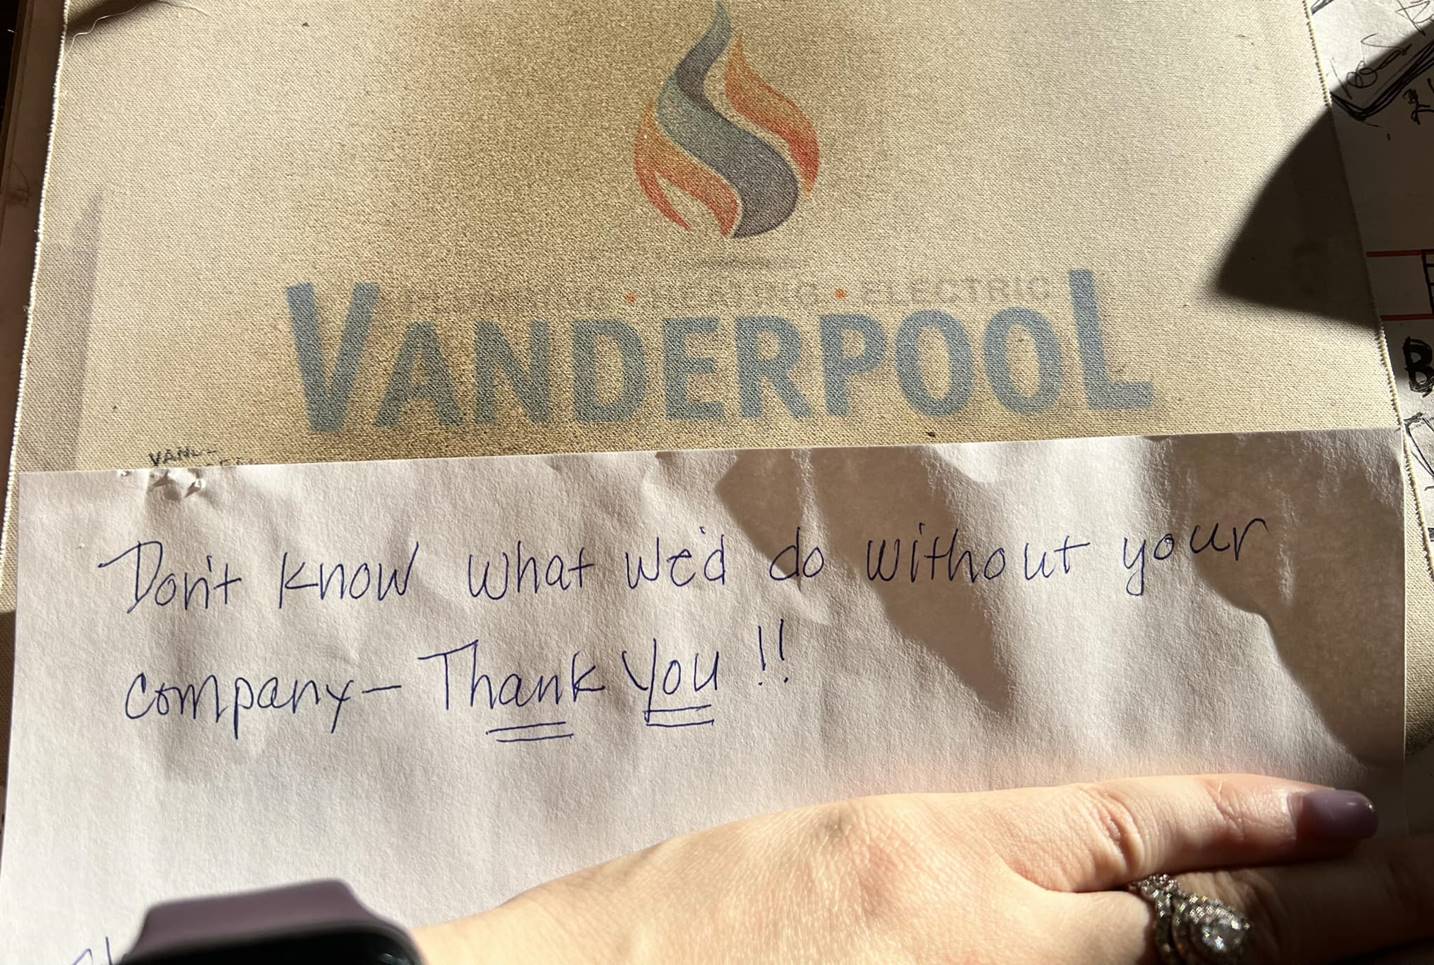 PLUMBING • HEATING • ELECTRIC
VANDERPOOL
Don't know what we'd do without your
company – Thank you !!